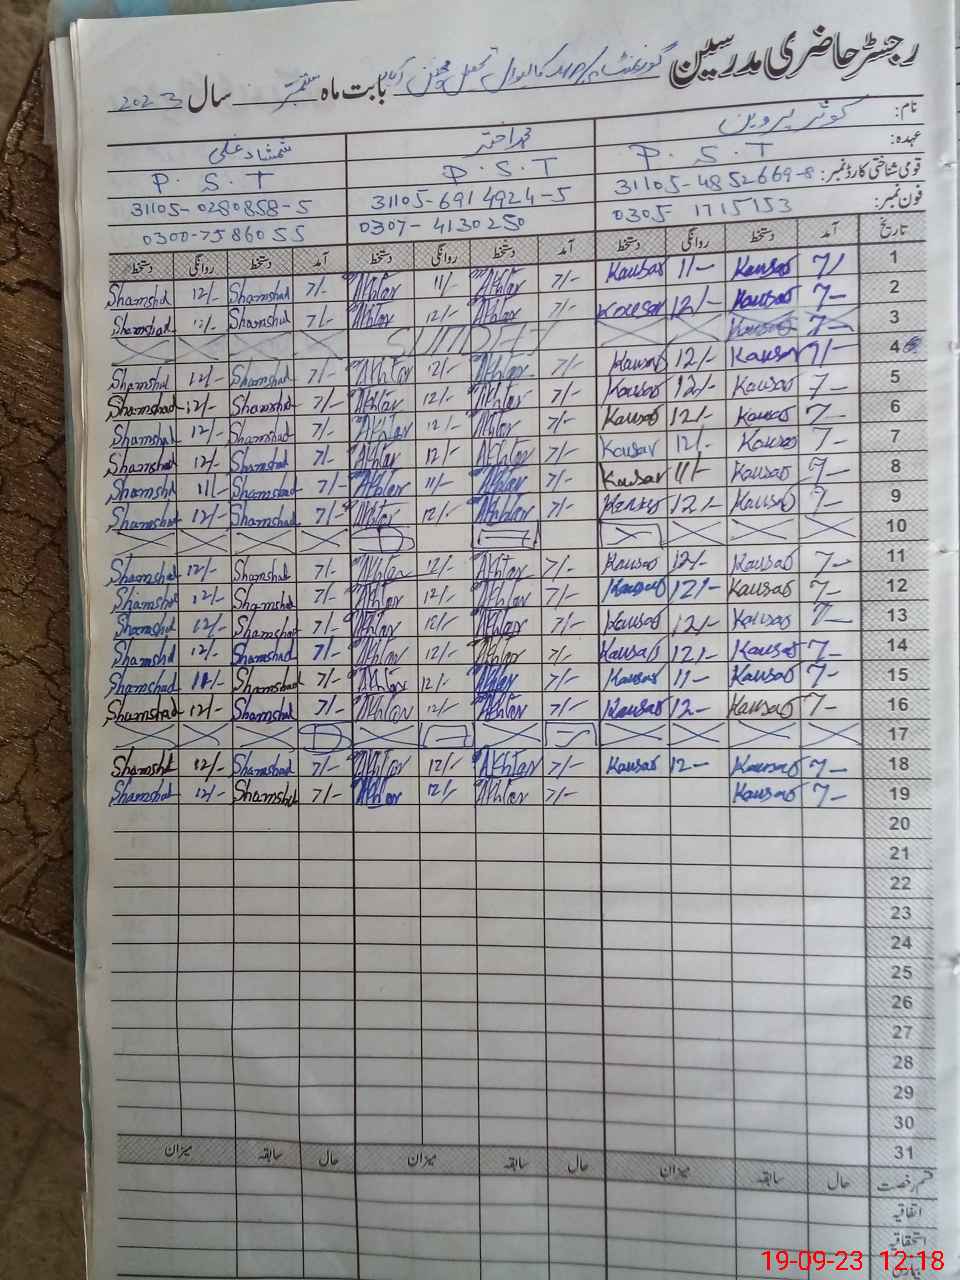 رجسٹر حاضری مدرسین گورنمنٹ بابت ماہ ستمبر سال 2023
نام: کوثر پروین اختر شمشاد علی
عہدہ: P.S.T P.S.T P.S.T
قومی شناختی کارڈ نمبر: 31105-4852669-8 31105-6914924-5 31105-0280858-5
فون نمبر: 0305-1715153 0307-4130250 0300-7586055
تاریخ آمد دستخط روانگی دستخط آمد دستخط روانگی دستخط آمد دستخط روانگی دستخط
1 7/ Kausar 11- Kausar 7/- Akhtar 11/- Akhtar 7/- Shamshad 12/- Shamshd
2 7- Kausar 12/- Kausar 7/- Akhtar 12/- Akhtar 7/- Shamshad 12/- Shamshad
3 Kausar 7- SUNDAY
4 9/- Kausar 12/- Kausar 7/- Akhtar 12/- Akhtar 7/- Shamshad 12/- Shamshd
5 7- Kausar 12/- Kausar 7/- Akhtar 12/- Akhtar 7/- Shamshad 12/- Shamshad
6 7- Kausar 12/- Kausar 7/- Akhtar 12/- Akhtar 7/- Shamshad 12/- Shamshd
7 7- Kausar 12/- Kausar 7/- Akhtar 12/- Akhtar 7/- Shamshad 12/- Shamshad
8 7- Kausar 11/- Kausar 7/- Akhtar 11/- Akhtar 7/- Shamshad 11/- Shamshd
9 9- Kausar 12/- 7/- Akhtar 12/- Akhtar 7/- Shamshad 12/- Shamshad
10
11 7- Kausar 12/- Kausar 7/- Akhtar 12/- Akhtar 7/- Shamshad 12/- Shamshad
12 7- Kausar 12/- Kausar 7/- Akhtar 12/- Akhtar 7/- Shamshad 12/- Shamshad
13 7- Kausar 12/- Kausar 7/- Akhtar 12/- Akhtar 7/- Shamshad 12/- Shamshd
14 7- Kausar 12/- Kausar 7/- Akhtar 12/- Akhtar 7/- Shamshad 12/- Shamshd
15 7- Kausar 11- Kausar 7/- Akhtar 12/- Akhtar 7/- Shamshad 11/- Shamshad
16 7- Kausar 12- Kausar 7/- Akhtar 12/- Akhtar 7/- Shamshad 12/- Shamshad
17
18 7- Kausar 12- Kausar 7/- Akhtar 12/- Akhtar 7/- Shamshad 12/- Shamshd
19 7- Kausar 7/- Akhtar 12/- Akhtar 7/- Shamshad 12/- Shamshad
20
21
22
23
24
25
26
27
28
29
30
31
قسم رخصت حال سابقہ میزان حال سابقہ میزان حال سابقہ میزان
اتفاقیہ
استحقاقیہ
19-09-23 12:18